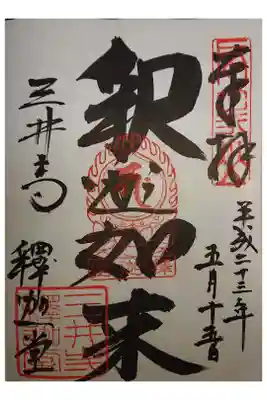 奉拝
平成二十三年
五月十五日
釈迦如来
三井寺
釋迦堂